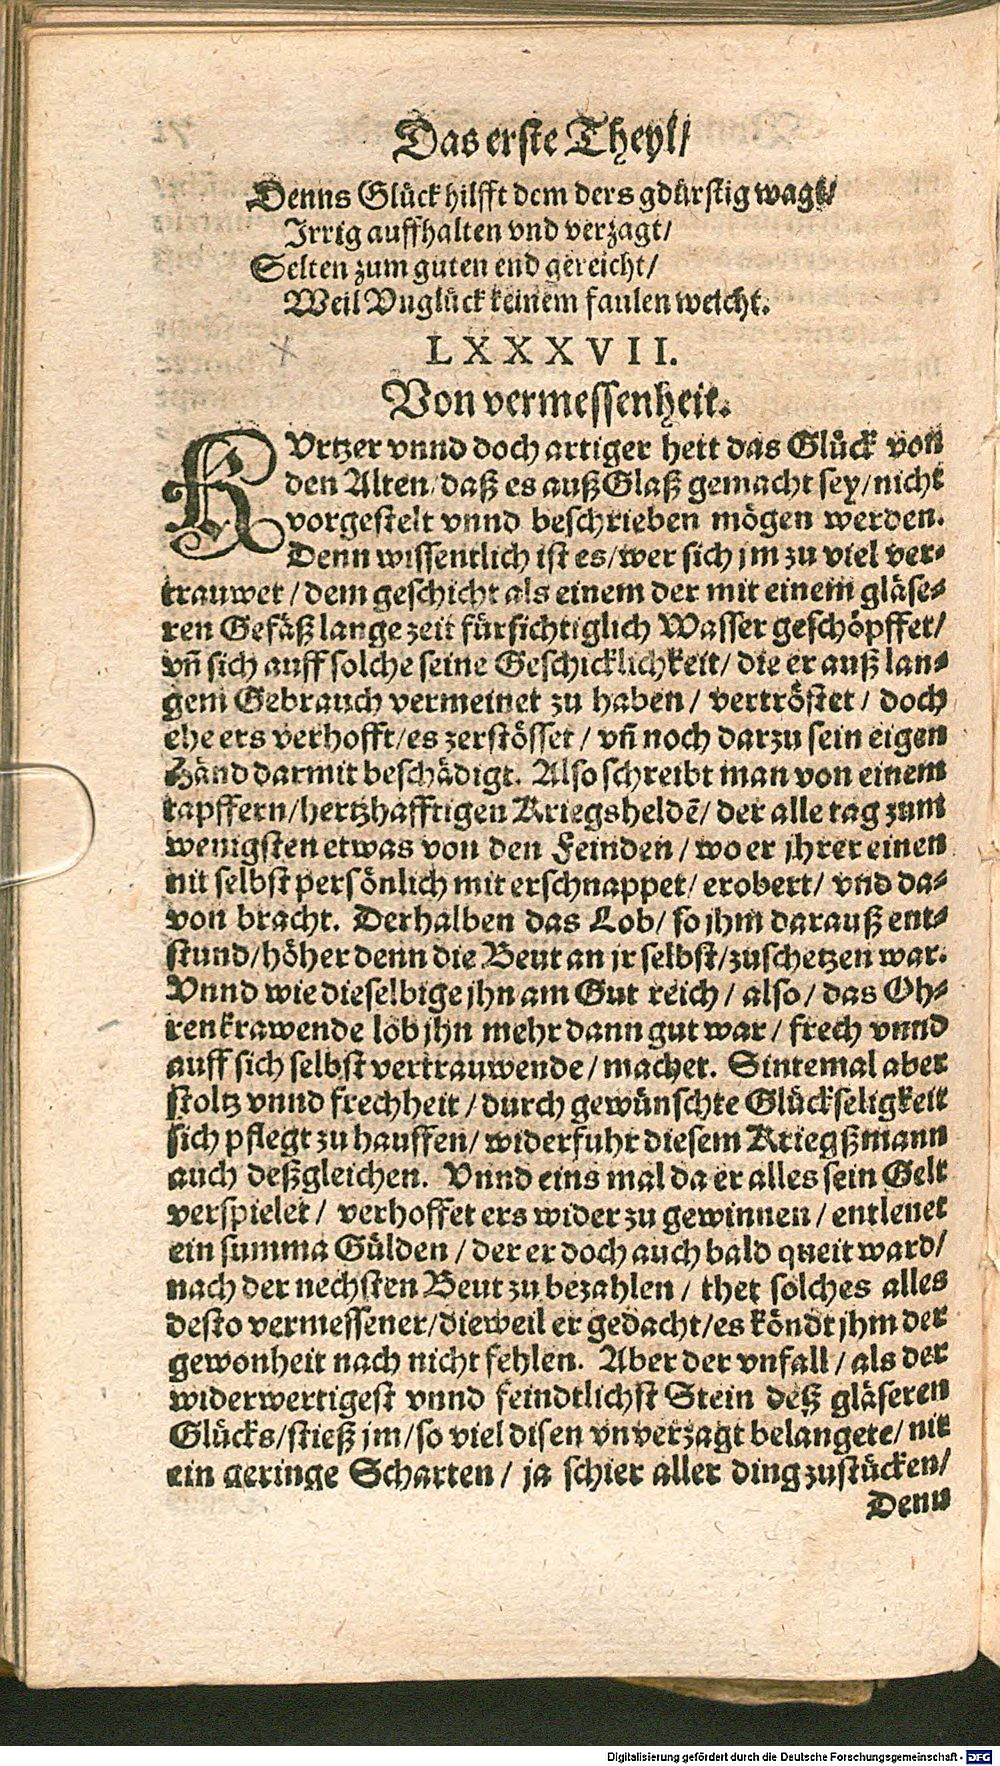 Das erste Theyl/
Denns Glück hilfft dem ders gdürstig wagt/
Irrig auffhalten vnd verzagt/
Selten zum guten end gereicht/
Weil Vnglück keinem faulen weicht.
LXXXVII.
Von vermessenheit.
KVrtzer vnnd doch artiger hett das Glück von
den Alten/ daß es auß Glaß gemacht sey/ nicht
vorgestelt vnnd beschrieben mögen werden.
Denn wissentlich ist es/ wer sich jm zu viel ver-
trauwet / dem geschicht als einem der mit einem gläse-
ren Gefäß lange zeit fürsichtiglich Wasser geschöpffet/
vñ sich auff solche seine Geschicklichkeit/ die er auß lan-
gem Gebrauch vermeinet zu haben / vertröstet / doch
ehe ers verhofft/ es zerstösset / vñ noch darzu sein eigen
Händ darmit beschädigt. Also schreibt man von einem
tapffern/ hertzhafftigen Kriegsheldẽ/ der alle tag zum
wenigsten etwas von den Feinden / wo er jhrer einen
nit selbst persönlich mit erschnappet/ erobert/ vnd da-
von bracht. Derhalben das Lob/ so jhm darauß ent-
stund/ höher denn die Beut an jr selbst/ zuschetzen war.
Vnnd wie dieselbige jhn am Gut reich / also / das Oh-
renkrawende lob jhn mehr dann gut war / frech vnnd
auff sich selbst vertrauwende / machet. Sintemal aber
stoltz vnnd frechheit / durch gewünschte Glückseligkeit
sich pflegt zu hauffen/ widerfuhr diesem Kriegßmann
auch deßgleichen. Vnnd eins mal da er alles sein Gelt
verspielet / verhoffet ers wider zu gewinnen / entlenet
ein summa Gülden / der er doch auch bald queit ward/
nach der nechsten Beut zu bezahlen / thet solches alles
desto vermessener/ dieweil er gedacht/ es köndt jhm der
gewonheit nach nicht fehlen. Aber der vnfall / als der
widerwertigest vnnd feindtlichst Stein deß gläseren
Glücks/ stieß jm/ so viel disen vnverzagt belangete/ nit
ein geringe Scharten / ja schier aller ding zustücken/
Denn
Digitalisierung gefördert durch die Deutsche Forschungsgemeinschaft - DFG